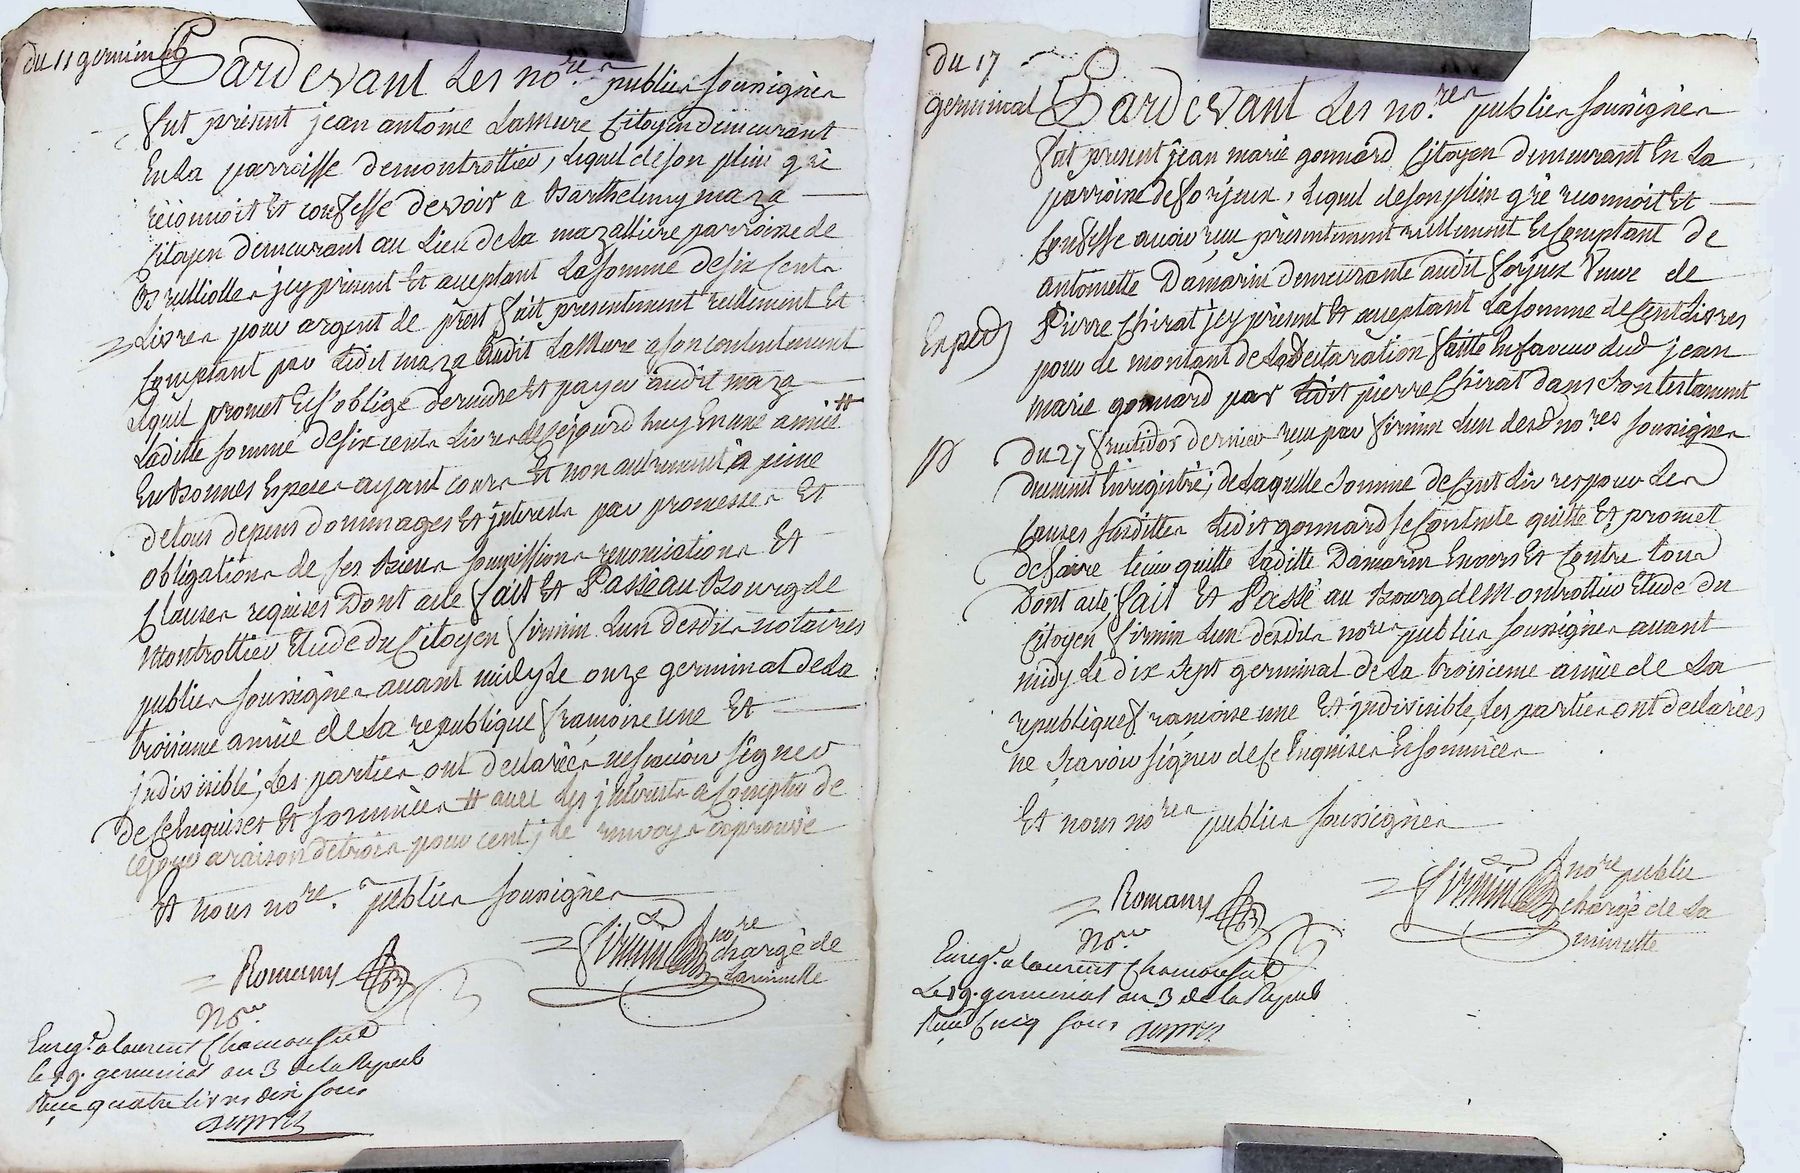 du 11 germinal
Pardevant Les no.re publics soussignés
fut présent jean antoine Lamure Citoyen demeurant
En La parroisse de montrottier, Lequel de son plein gré
réconnoit et confesse devoir a Barthelemy maza
Citoyen demeurant au Lieu de La mazalliere parroisse de
Brullioles jcy présent Et aceptant La somme de six Cents
Livres pour argent de prest fait presentement réellement Et
Comptant par Ledit maza audit Lamure a son contentement
Lequel promet Et s'oblige de rendre et payer audit maza
Laditte somme de six cents Livres de ce jourd'huy En une année #
En Bonnes Especes ayant cours Et non autrement à peine
de tous depens dommages Et jnterests par promesses Et
obligations de ses Biens soumissions renonciations Et
Clauses requises Dont acte fait Et Passé au Bourg de
Montrottier Etude du Citoyen firmin L'un desdits notaires
publics soussignés avant midy Le onze germinal de La
troisieme année de La republique françoise une Et
jndivisible, Les parties ont declarées ne sçavoir signer
de ce Enquises Et sommées # avec Les jnterests a Compter de
ce jour a raison de trois pour cent, le renvoy approuvé
Et nous no.re publics soussignés
Romany
No.re
firmin no.re
chargé de
La minutte
Enreg.é a laurent Chamousset
le 19. germinal an 3 de la Repub
Reçu quatre livres dix sous
du 17
germinal
Pardevant Les no.res publics soussignés
fut présent jean marie gonnard Citoyen demeurant En La
parroisse de Forjeux, Lequel de son plein gré reconnoit Et
Confesse avoir reçu présentement réellement Et Comptant de
antoinette Damarin demeurante audit Forjeux Veuve de
Pierre Chirat jcy présent Et aceptant La somme de Cent Livres
Exped
pour le montant de La Declaration faitte En faveur dud jean
marie gonnard par Ledit pierre Chirat dans son testament
du 27 fructidor dernier reçu par firmin L'un desd no.res soussignés
duement Enregistré; de Laquelle somme de Cent Livres pour Les
Causes susdittes Ledit gonnard se Contente quitte Et promet
de faire tenir quitte Laditte Damarin Envers Et Contre tous
Dont acte fait Et Passé au Bourg de Montrottier Etude du
Citoyen firmin L'un desdits no.res publics soussignés avant
midy Le dix sept germinal de La troisieme année de La
republique françoise une Et jndivisible, Les parties ont declarées
ne sçavoir signer de ce Enquises Et sommées
Et nous no.res publics soussignés
Romany
No.re
firmin no.re public
chargé de La
minutte
Enreg.é a laurent Chamousset
Le 19. germinal an 3 de la Repub
Reçu Cinq sous